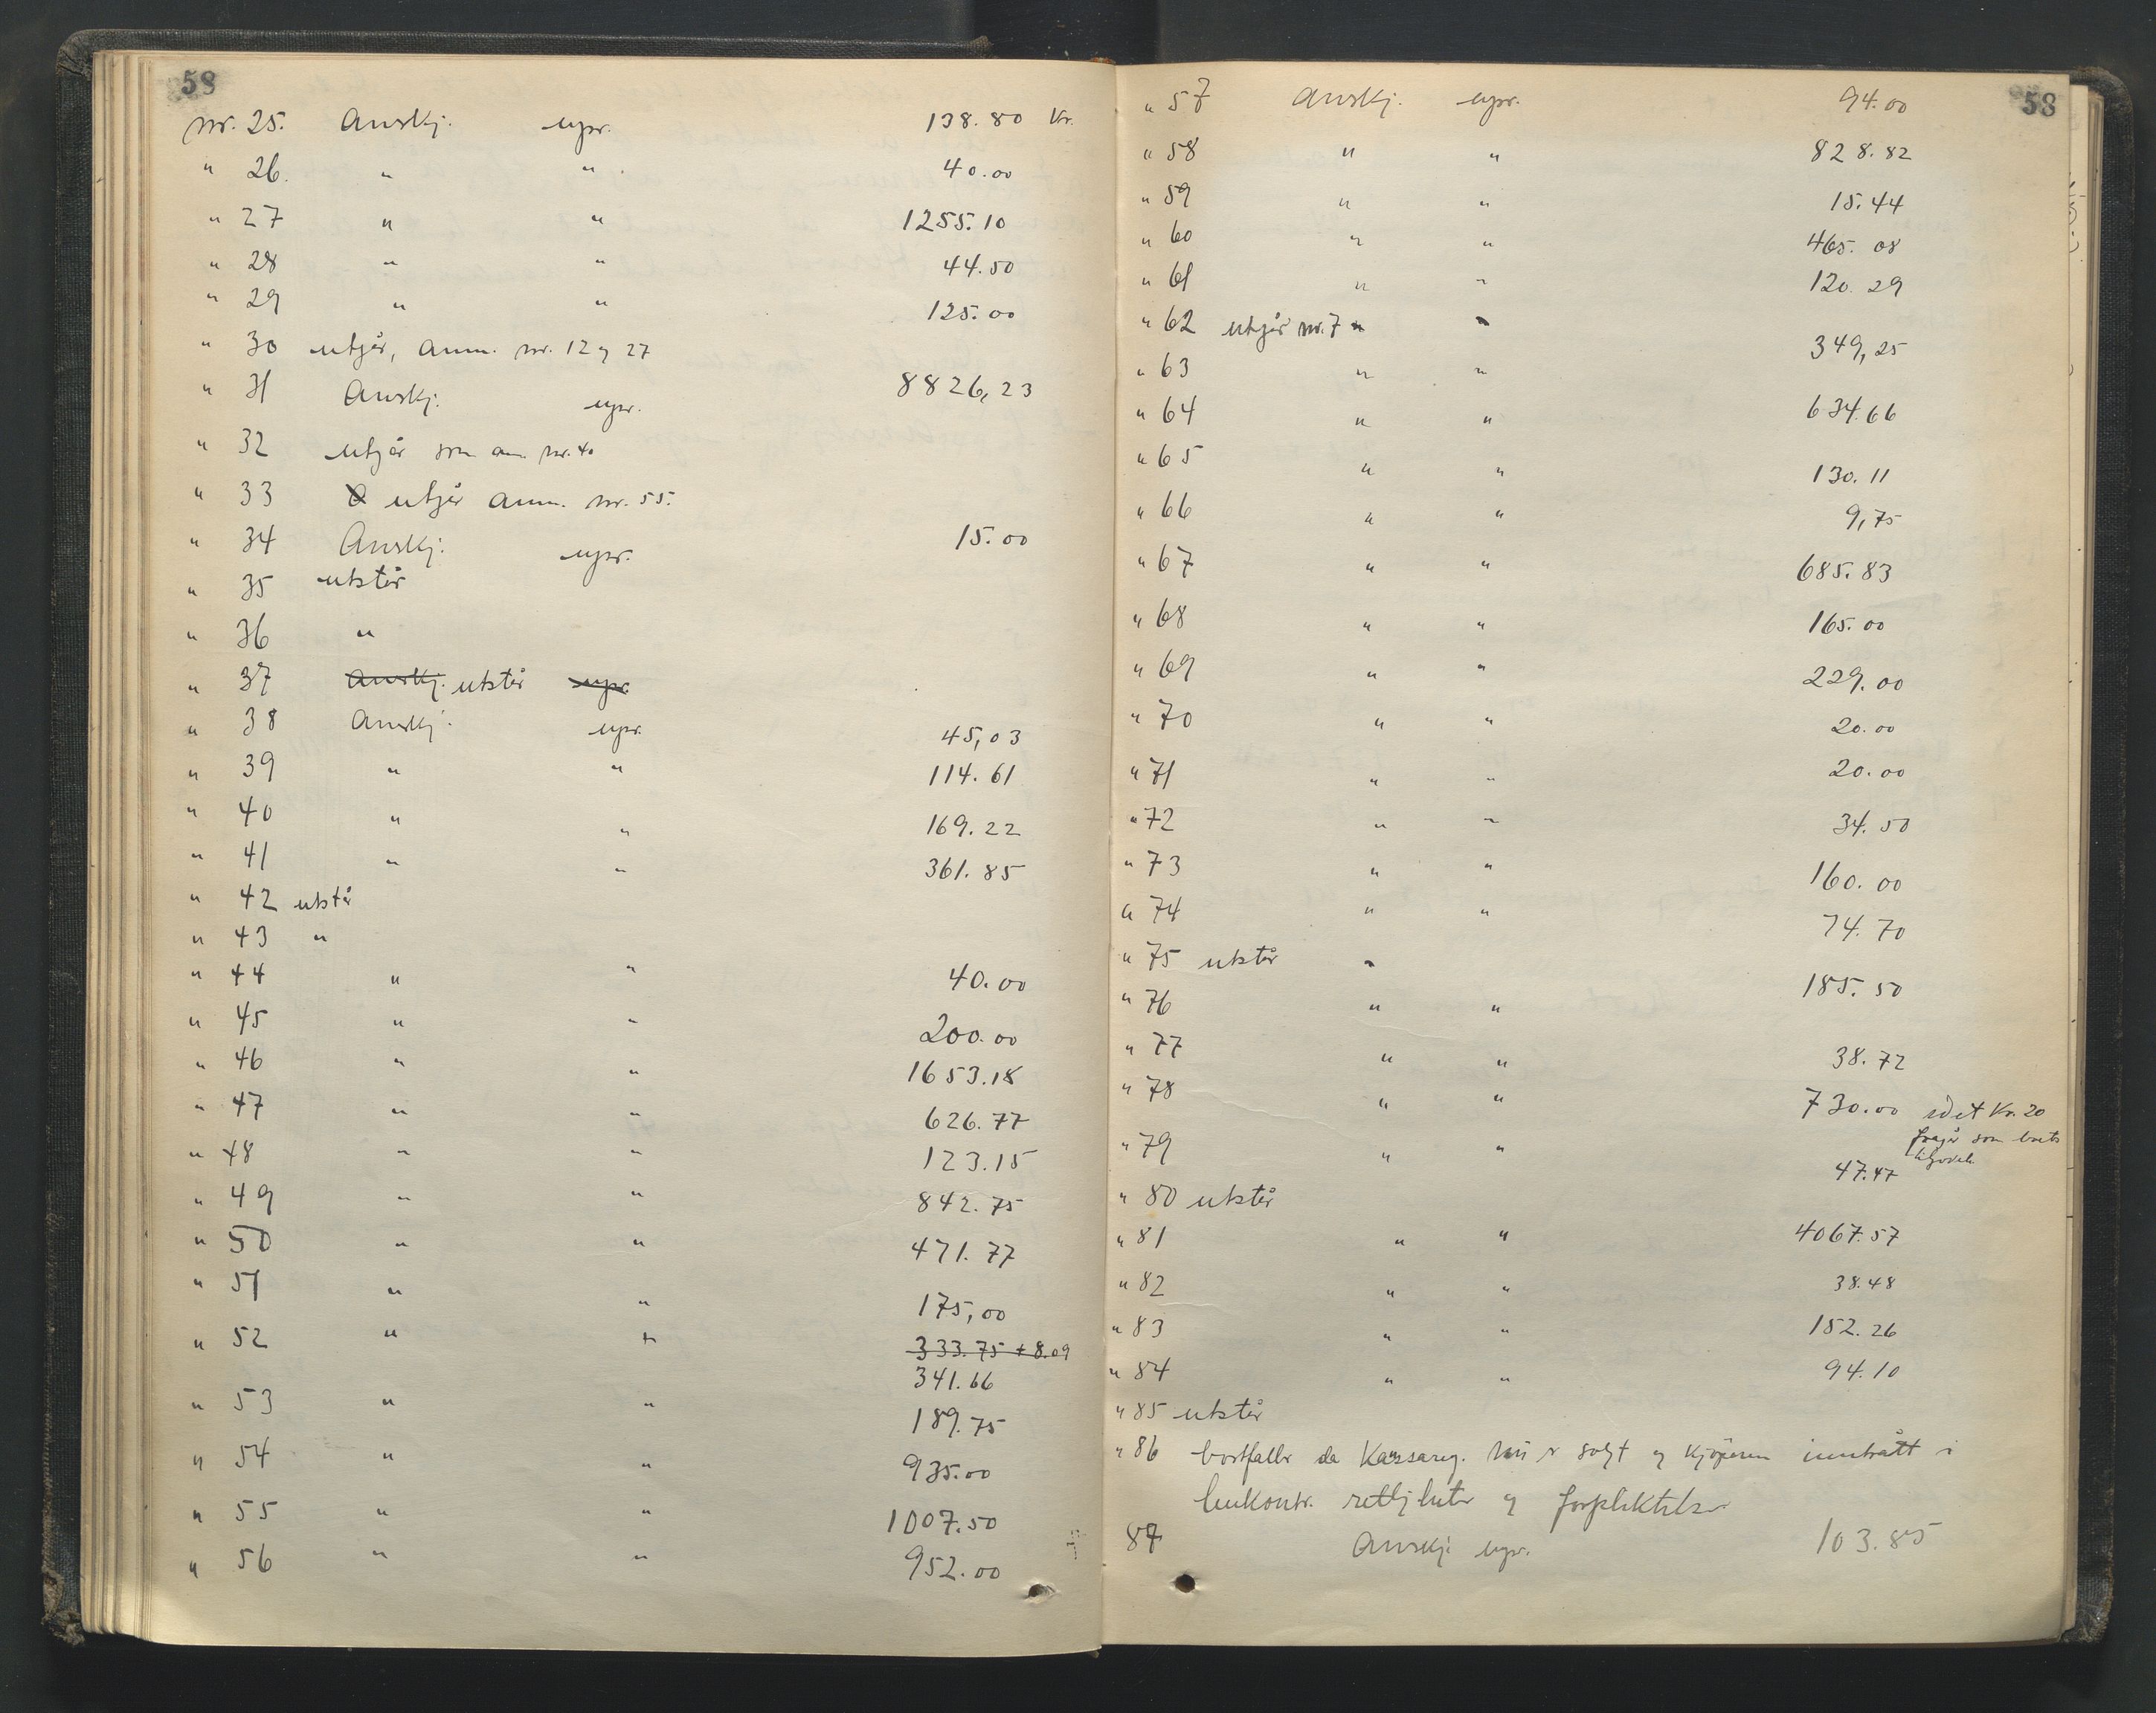 58
nr. 25. Anerkj. upr. 138.80 Kr.
" 26. " " 40.00
" 27 " " 1255.10
" 28 " " 44.50
" 29 " " 125.00
" 30 utgår, anm. nr. 12 og 27
" 31 Anerkj. upr. 8826,23
" 32 utgår som anm. nr. 40
" 33 utgår anm. nr. 55.
" 34 Anerkj. upr. 15.00
" 35 utstår
" 36 "
" 37 Anerkj. utstår upr.
" 38 Anerkj. upr. 45,03
" 39 " " 114.61
" 40 " " 169.22
" 41 " " 361.85
" 42 utstår
" 43 "
" 44 " " 40.00
" 45 " " 200.00
" 46 " " 1653.18
" 47 " " 626.77
" 48 " " 123.15
" 49 " " 842.75
" 50 " " 471.77
" 51 " " 175,00
" 52 " " 333.75 + 8.09
341.66
" 53 " " 189.75
" 54 " " 935.00
" 55 " " 1007.50
" 56 " " 952.00
58
" 57 Anerkj. upr. 94.00
" 58 " " 828.82
" 59 " " 15.44
" 60 " " 465.08
" 61 " " 120.29
" 62 utgår nr. 7
" 63 " " 349,25
" 64 " " 634.66
" 65 " " 130.11
" 66 " " 9,75
" 67 " " 685.83
" 68 " " 165.00
" 69 " " 229.00
" 70 " " 20.00
" 71 " " 20.00
" 72 " " 34.50
" 73 " " 160.00
" 74 " " 74.70
" 75 utstår
" 76 " " 185.50
" 77 " " 38.72
" 78 " " 730.00 idet Kr. 20
fragår som boets
tilgodeh.
" 79 " " 47.47
" 80 utstår
" 81 " " 4067.57
" 82 " " 38.48
" 83 " " 152.26
" 84 " " 94.10
" 85 utstår
" 86 bortfaller da Kassareg. er solgt og kjøperen inntrått i
leukontr. rettigheter og forpliktelser
87 Anerkj. upr. 103.85